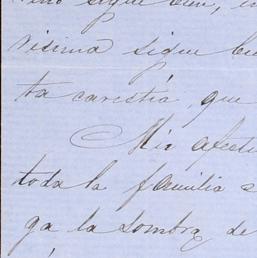 sigue bien,
visima sigue
ta carestia, que
Mis afect
toda la familia s
ga la sombra de